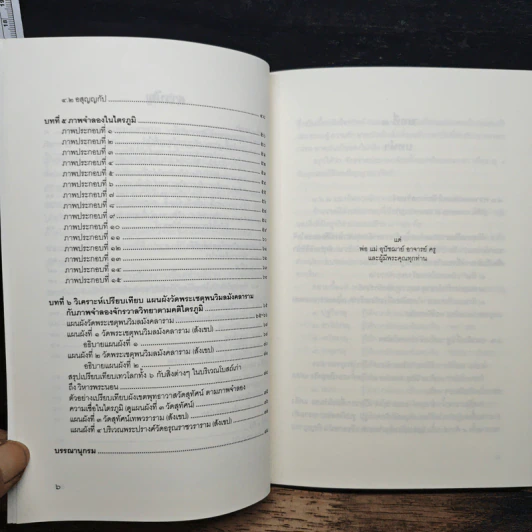 ๔.๒ อสุญญกัป
บทที่ ๕ ภาพจำลองในไตรภูมิ
ภาพประกอบที่ ๑
ภาพประกอบที่ ๒
ภาพประกอบที่ ๓
ภาพประกอบที่ ๔
ภาพประกอบที่ ๕
ภาพประกอบที่ ๖
ภาพประกอบที่ ๗
ภาพประกอบที่ ๘
ภาพประกอบที่ ๙
ภาพประกอบที่ ๑๐
ภาพประกอบที่ ๑๑
ภาพประกอบที่ ๑๒
ภาพประกอบที่ ๑๓
ภาพประกอบที่ ๑๔
ภาพประกอบที่ ๑๕
บทที่ ๖ วิเคราะห์เปรียบเทียบ แผนผังวัดพระเชตุพนวิมลมังคลาราม
กับภาพจำลองจักรวาลวิทยาตามคติไตรภูมิ
แผนผังวัดพระเชตุพนวิมลมังคลาราม
แผนผังที่ ๑ วัดพระเชตุพนวิมลมังคลาราม (สังเขป)
อธิบายแผนผังที่ ๑
แผนผังที่ ๒ วัดพระเชตุพนวิมลมังคลาราม (สังเขป)
อธิบายแผนผังที่ ๒
สรุปเปรียบเทียบเทวโลกทั้ง ๖ กับสิ่งต่างๆ ในบริเวณโบสถ์เก่า
ถึง วิหารพระนอน
ตัวอย่างเปรียบเทียบผังเขตพุทธาวาสวัดสุทัศน์ ตามภาพจำลอง
ความเชื่อในไตรภูมิ (ดูแผนผังที่ ๓ วัดสุทัศน์)
แผนผังที่ ๓ วัดสุทัศน์เทพวราราม (สังเขป)
แผนผังที่ ๔ บริเวณพระปรางค์วัดอรุณราชวราราม (สังเขป)
บรรณานุกรม
๖
แด่
พ่อ แม่ อุปัชฌาย์ อาจารย์ ครู
และผู้มีพระคุณทุกท่าน